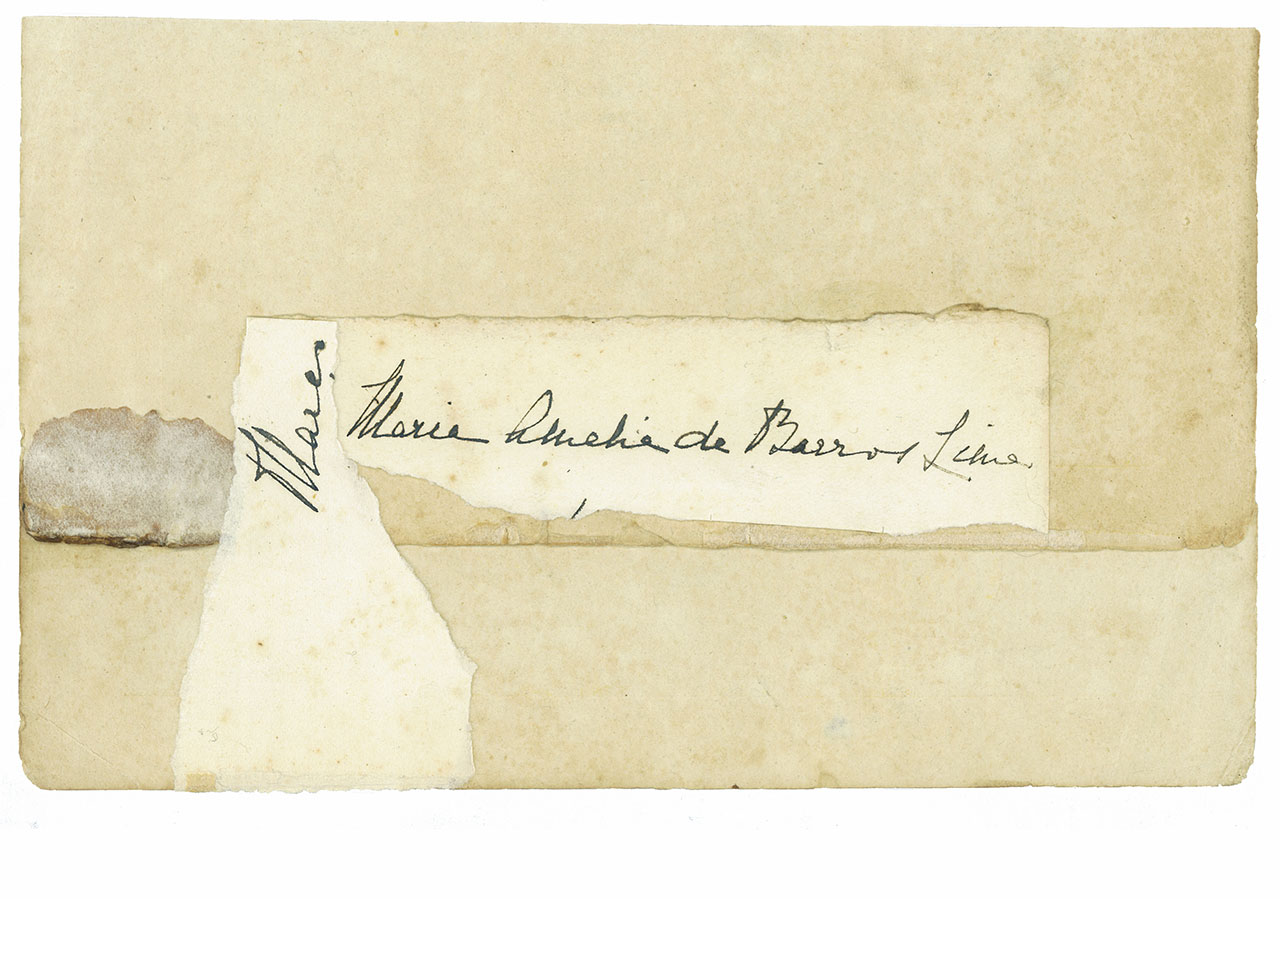 Maria Amelia de Barros Lima